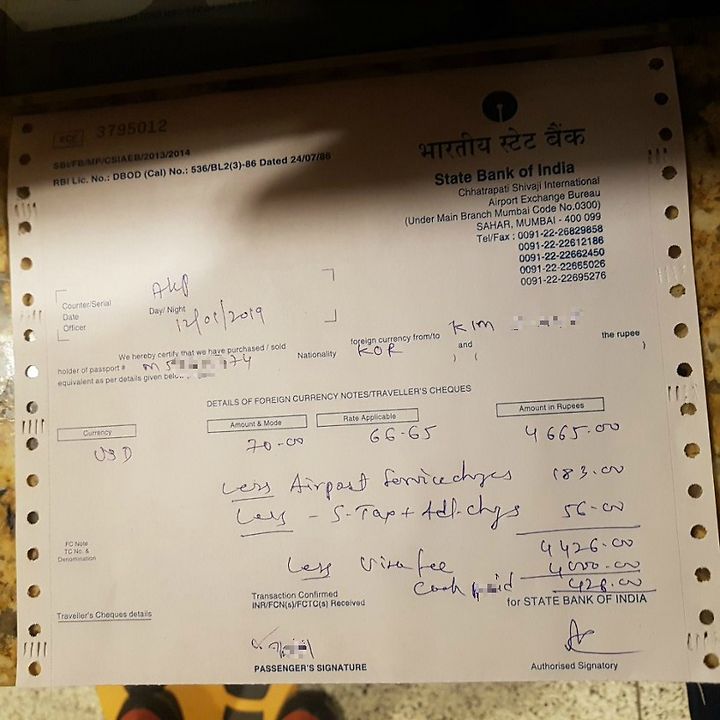 FCE 3795012
SBI/FB/MP/CSIAEB/2013/2014
RBI Lic. No.: DBOD (Cal) No.: 536/BL2(3)-86 Dated 24/07/86
भारतीय स्टेट बैंक
State Bank of India
Chhatrapati Shivaji International
Airport Exchange Bureau
(Under Main Branch Mumbai Code No.0300)
SAHAR, MUMBAI - 400 099
Tel/Fax : 0091-22-26829858
0091-22-22612186
0091-22-22662450
0091-22-22665026
0091-22-22695276
Counter/Serial
Date Day/ Night
Officer 12/01/2019
We hereby certify that we have purchased / sold foreign currency from/to KIM the rupee
holder of passport # M5 74 Nationality KOR and ) (
equivalent as per details given below )
DETAILS OF FOREIGN CURRENCY NOTES/TRAVELLER'S CHEQUES
Currency Amount & Mode Rate Applicable Amount in Rupees
USD 70-00 66-65 4665-00
Less Airport Service chges 183-00
Less - S-Tax + Adl-chgs 56-00
FC Note
TC No. &
Denomination
4426-00
Less Visa fee 4000-00
Cash paid 426-00
Transaction Confirmed
INR/FCN(s)/FCTC(s) Received for STATE BANK OF INDIA
Traveller's Cheques details
PASSENGER'S SIGNATURE Authorised Signatory